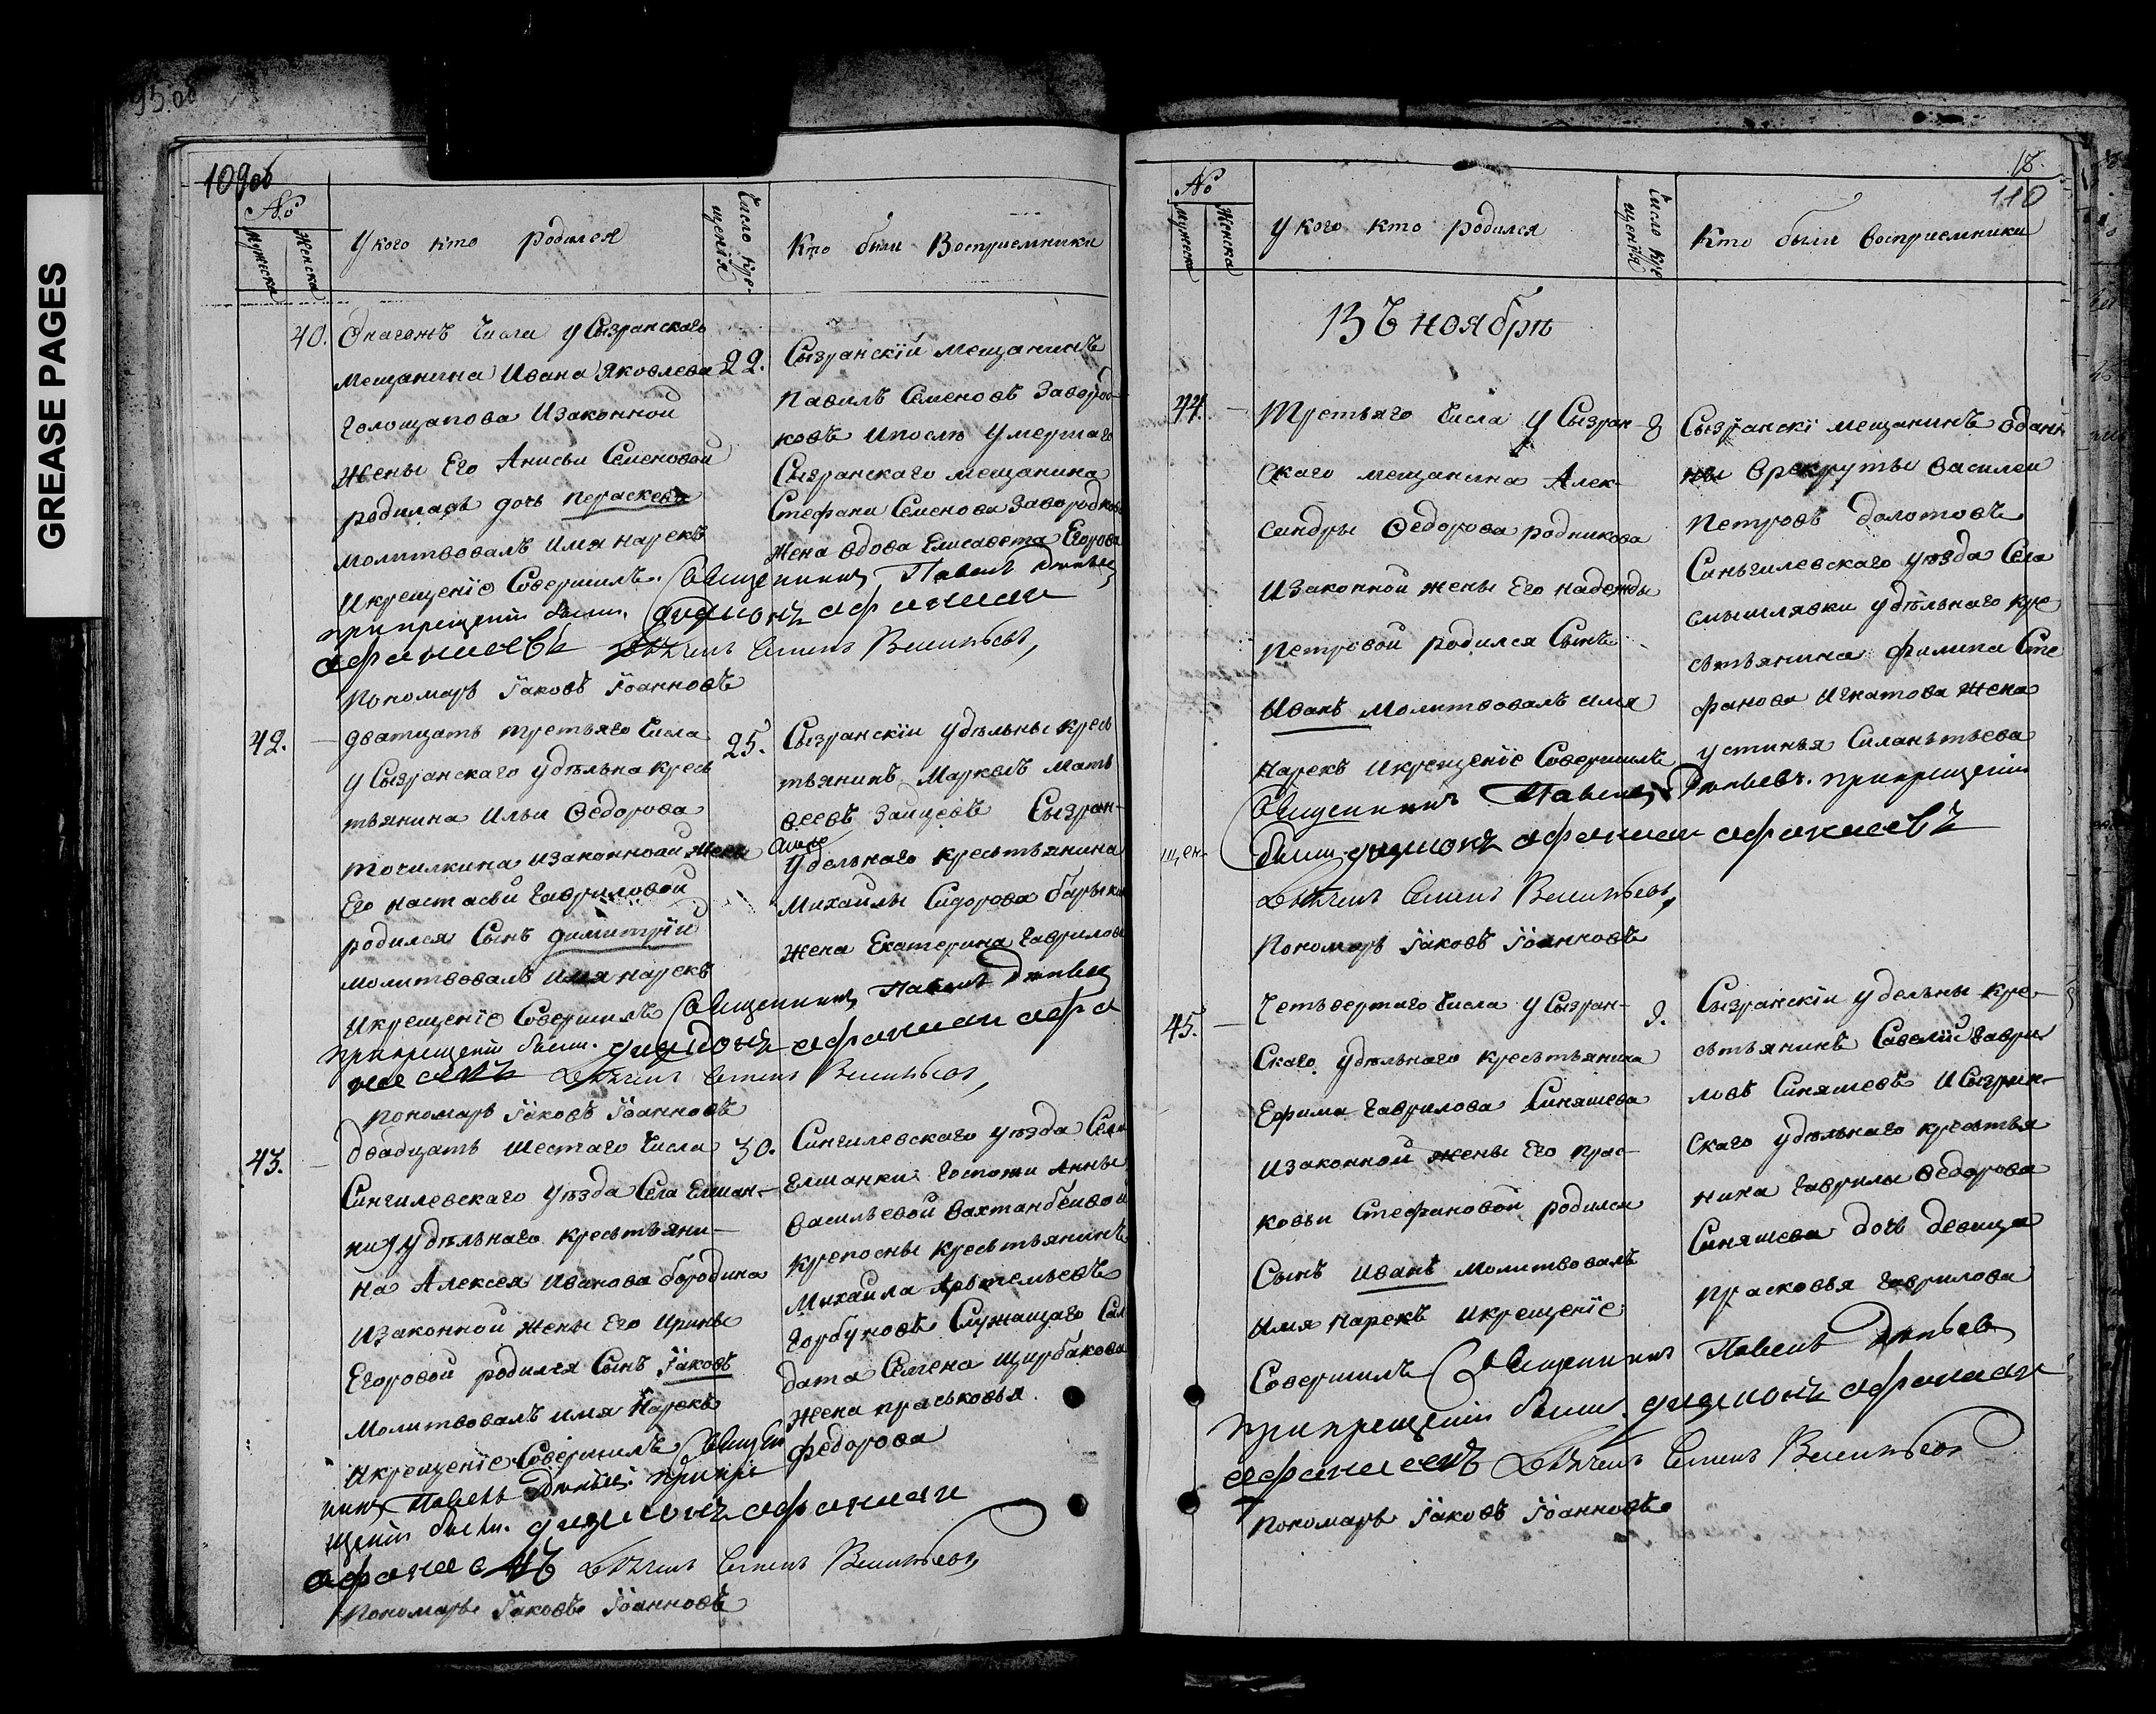 GREASE PAGES
95 об
109об
№
Мужеска
Женска
У кого кто родился
Число кре-
щенія
Кто были Восприемники
40. Онагожъ Числа у Сызранскаго
мещанина Ивана Яковлева
Голощапова Изаконной
жены Его Анисьи Семеновой
родилась дочь Параскева
молитвовалъ Имя нарекъ
Икрещеніе Совершилъ. Священникъ Павелъ
прикрещеніи были. диаконъ афанасии
афанасиевъ Семенъ Васильевъ,
Пономарь Іаковъ Іоанновъ
22. Сызранскій мещанинъ
Павилъ Семеновъ Завород-
ковъ Ипосля Умершаго
Сызранскаго мещанина
Стефана Семенова Завородков
Жена вдова Елисавета Егорова
42. дватцать третьяго Числа
у Сызранскаго удѣльна кресь
тьянина Ильи Ѳедорова
точилкина изаконной жены
Его настасьи Гавриловой
родился Сынъ димитрій
молитвовалъ имя нарекъ
икрещеніе Совершилъ Священникъ Павелъ
прикрещеніи были. диаконъ афанасии афа
насиевъ Семенъ Васильевъ,
пономарь Іаковъ Іоанновъ
25. Сызранскіи удѣльны кресь
тьянинъ Маркелъ Мать
веевъ Зайцевъ Сызран-
скаго
Удельнаго крестьянина
Михаилы Сидорова
жена Екатерина Гаврилов
43. двадцать шестаго Числа
Сингилевскаго уѣзда Села Елшан-
ки удѣльнаго крестьяни-
на Алексея Иванова бородина
изаконной жены Его Ирины
Егоровой родился Сынъ Іаковъ
Молитвовалъ имя Нарекъ
Икрещеніе Совершилъ Священ
никъ Павелъ прикре
щеніи были. диаконъ афанасии
афанасиевъ Семенъ Васильевъ,
Пономарь Іаковъ Іоанновъ
30. Сингилевскаго уѣзда Села
Елшанки Госпожи Анны
Васильевой
крепосны крестьянинъ
Михаила Артемьевъ
Горбуновъ Служащаго Сол
дата Семена щирбакова
жена праськовья
федорова
18.
110
№
Мужеска
Женска
У кого кто родился
Число кре
щенія
Кто были восприемники
Въ ноябрѣ
44. Третьяго Числа у Сызран-
скаго мещанина Алек-
сандры Ѳедорова родникова
Изаконной жены Его надежды
петровой родился Сынъ
Иванъ Молитвовалъ имя
нарекъ икрещеніе Совершилъ
Священникъ Павелъ прикрещеніи
были диаконъ афанасии афанасиевъ
Семенъ Васильевъ,
Пономарь Іаковъ Іоанновъ
8 Сызранскі мещанинъ одани
ны Врекруты василеи
петровъ долотовъ
Синьгилевскаго уѣзда Села
смышлявки удѣльнаго кре
стьянина филипа Сте
фанова Игнатова жена
устинья Силантьева
щен-
45. Четьвертаго Числа у Сызран-
скаго удѣльнаго крестьянина
Ефима Гаврилова Синяшева
изаконной жены Его прас-
ковьи Стефановой родился
Сынъ Иванъ молитвовалъ
Имя нарекъ Икрещеніе
Совершилъ Священникъ Павелъ
прикрещеніи были. диаконъ афанасии
афанасиевъ Семенъ Васильевъ
Пономарь Іаковъ Іоанновъ
9. Сызранскіи удельны кре-
стьянинъ Савелій Гаври
ловъ Синяшевъ И Сызран-
скаго удѣльнаго крестья
нина Гаврилы Ѳедорова
Синяшева дочь девица
прасковья Гаврилова